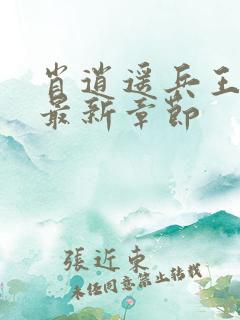 肖逍遥兵王
最新章节
張近東
未经同意禁止转载